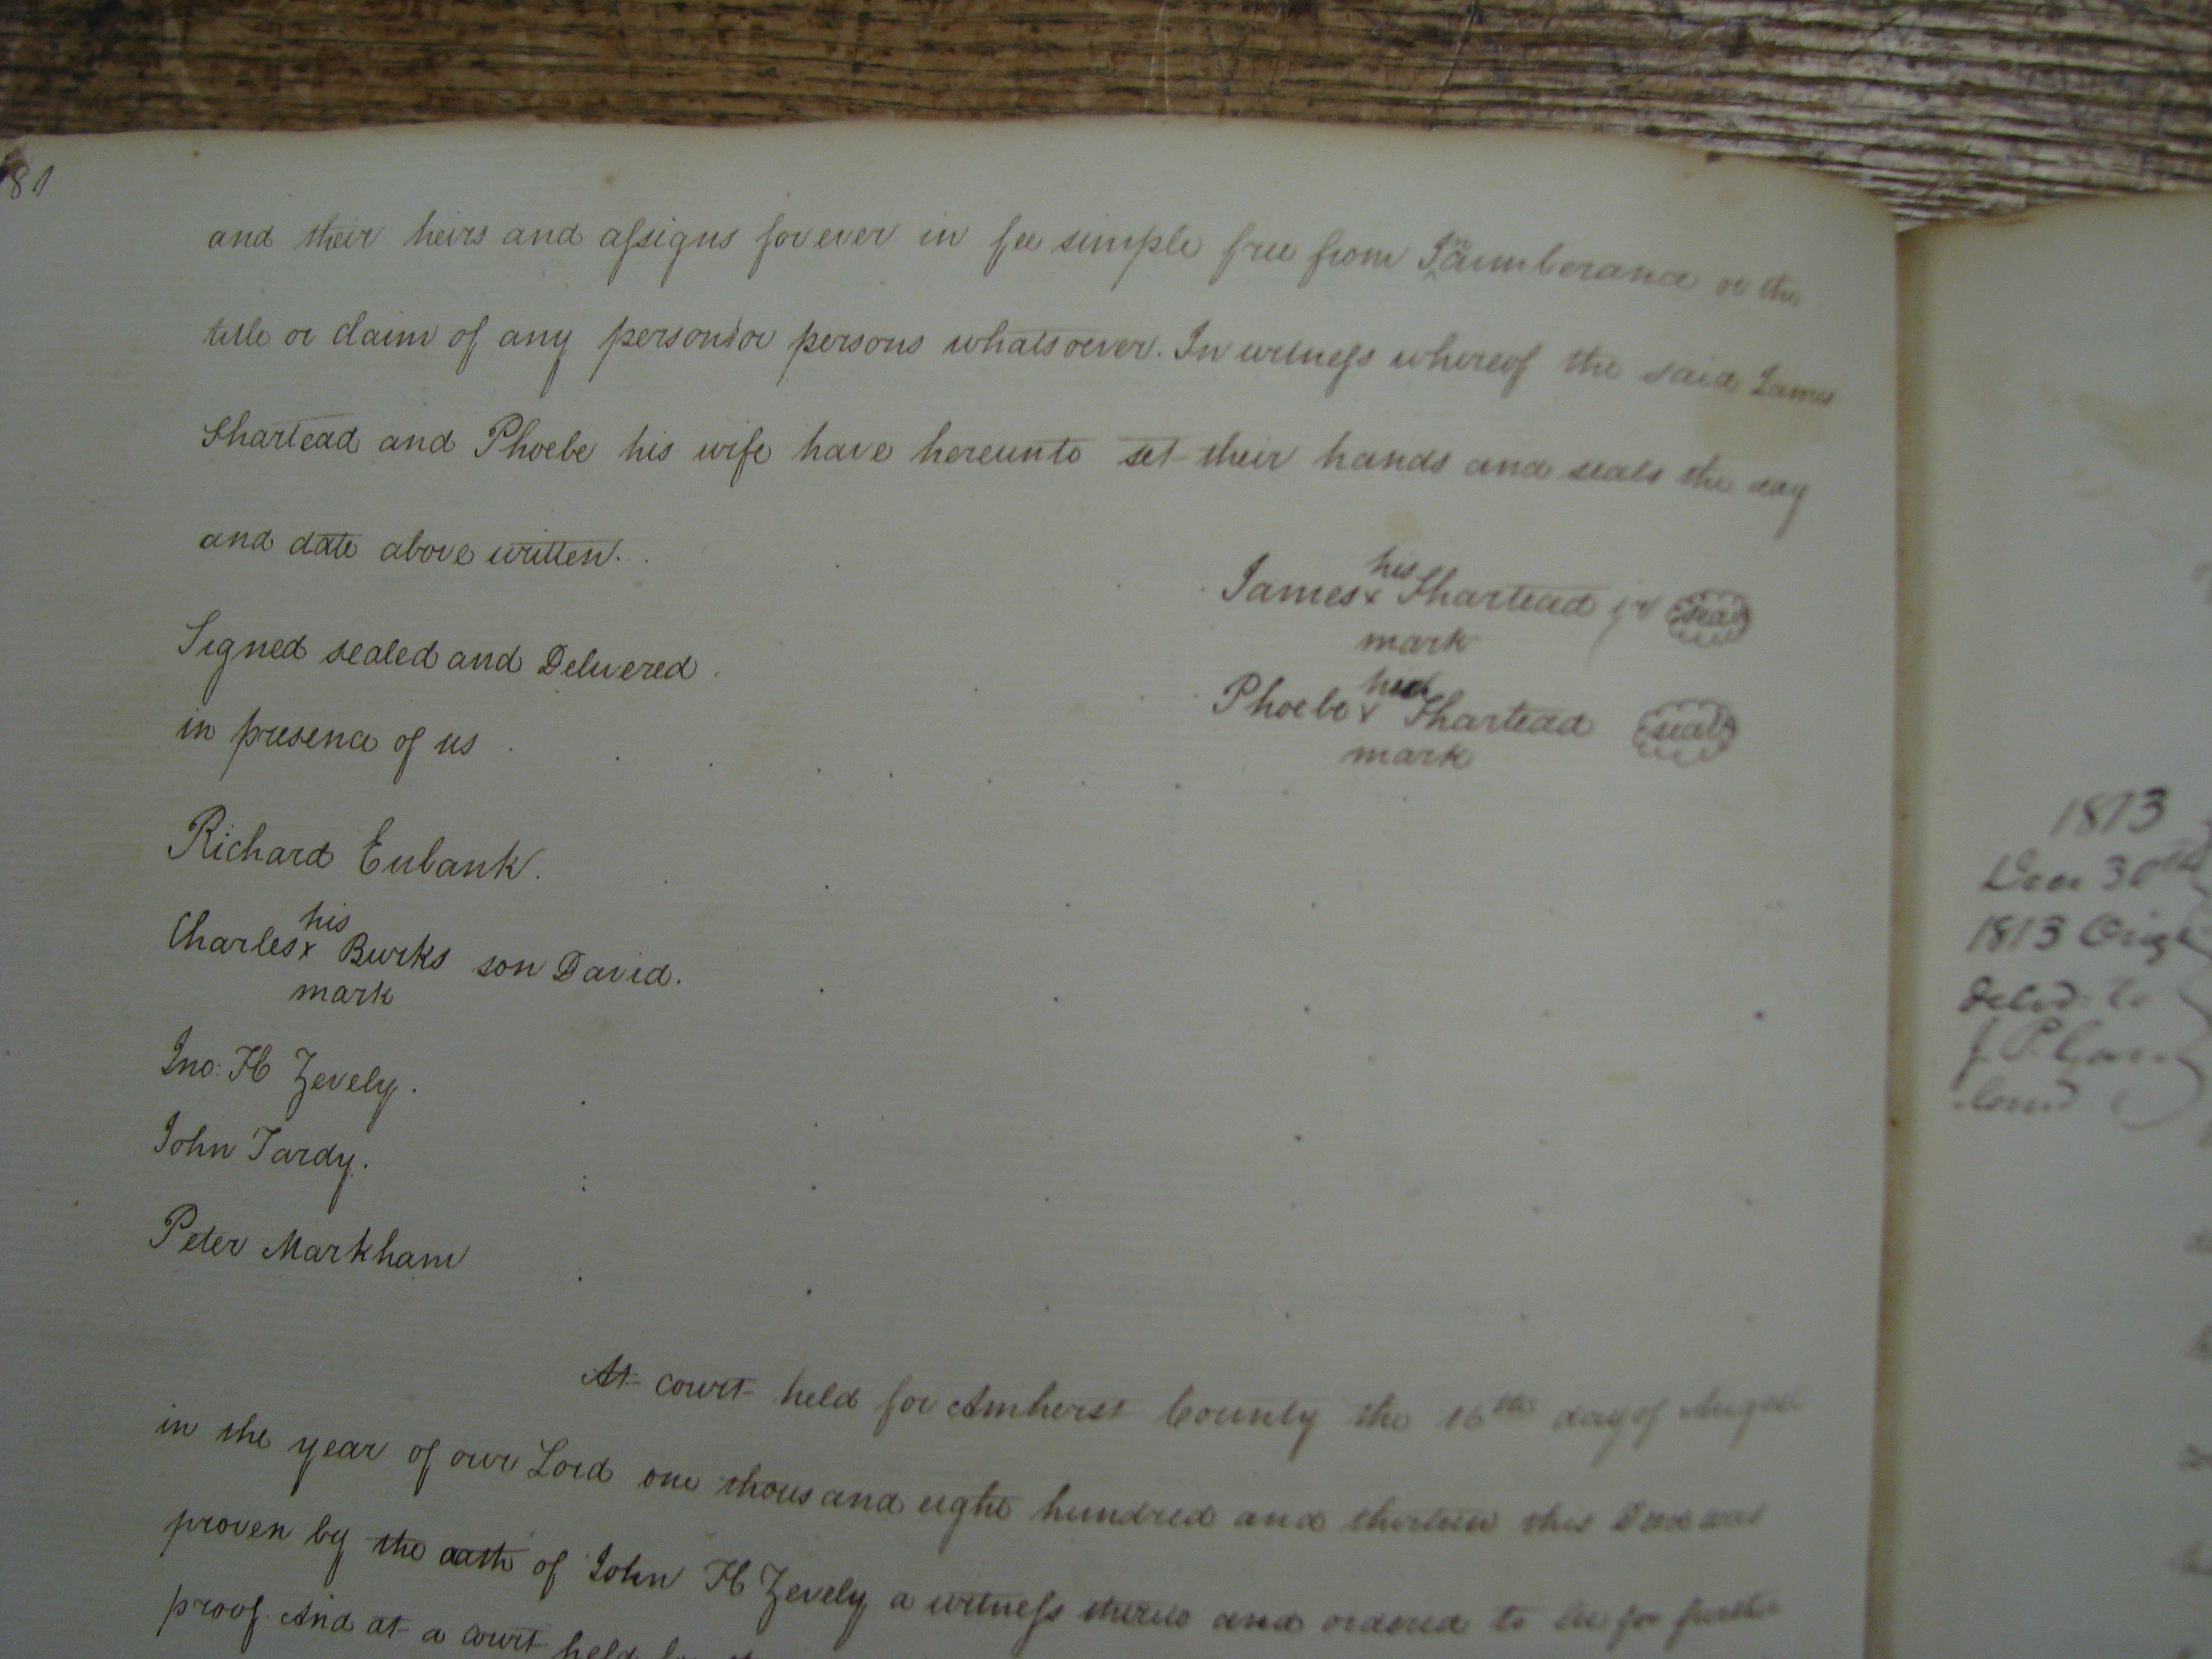 81
and their heirs and assigns forever in fee simple free from Incumberance or the
title or claim of any person or persons whatsoever. In witness whereof the said James
Shartead and Phoebe his wife have hereunto set their hands and seals the day
and date above written.
his
James x Shartead jr seal
mark
Signed sealed and Delivered
her
Phoebe x Shartead seal
mark
in presence of us
Richard Eubank.
his
Charles x Burks son David.
mark
Jno: H Zevely.
John Tardy.
Peter Markham
At court held for Amherst County the 16th day of August
in the year of our Lord one thousand eight hundred and thirteen this Deed was
proven by the oath of John H Zevely a witness thereto and ordered to lie for further
proof. And at a court held
1813
30th
1813
deld. to
J. P.